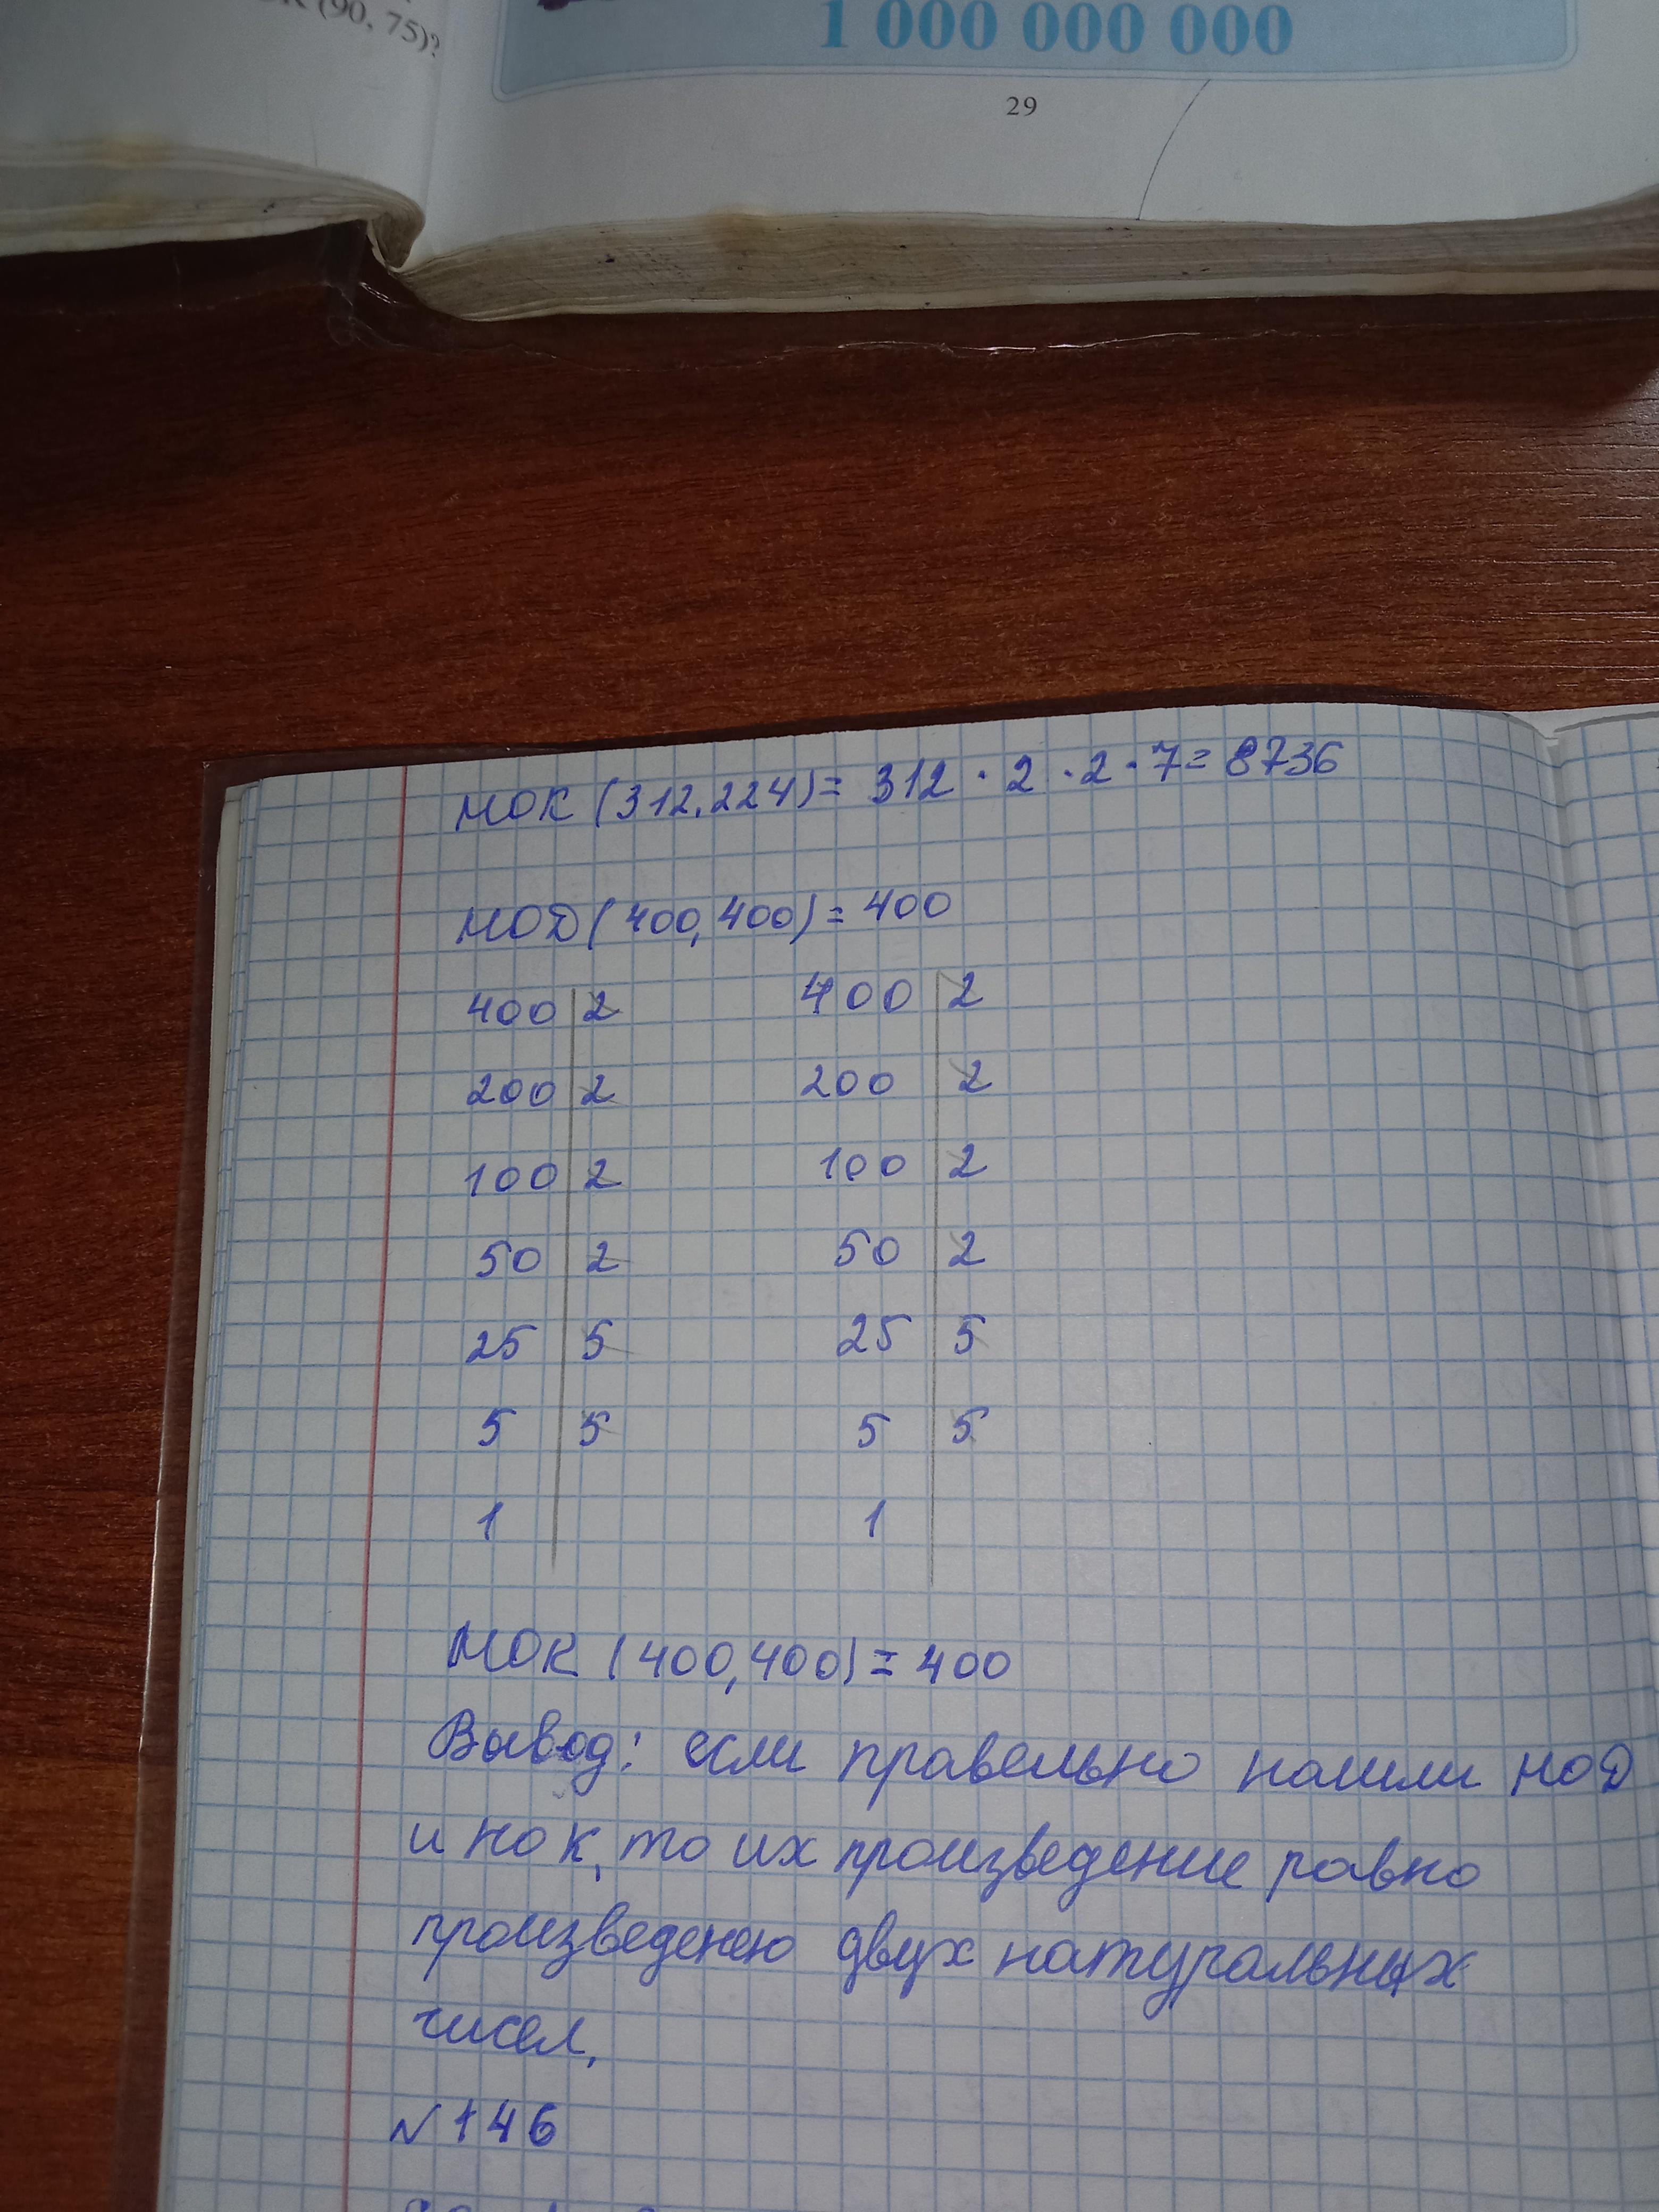 (90, 75)?
1 000 000 000
29
НОК (312,224) = 312 · 2 · 2 · 7 = 8736
НОД (400,400) = 400
400 | 2 400 | 2
200 | 2 200 | 2
100 | 2 100 | 2
50 | 2 50 | 2
25 | 5 25 | 5
5 | 5 5 | 5
1 1
НОК (400,400) = 400
Вывод: если правельно нашли НОД
и НОК, то их произведение равно
произведеню двух натуральных
чисел,
№146